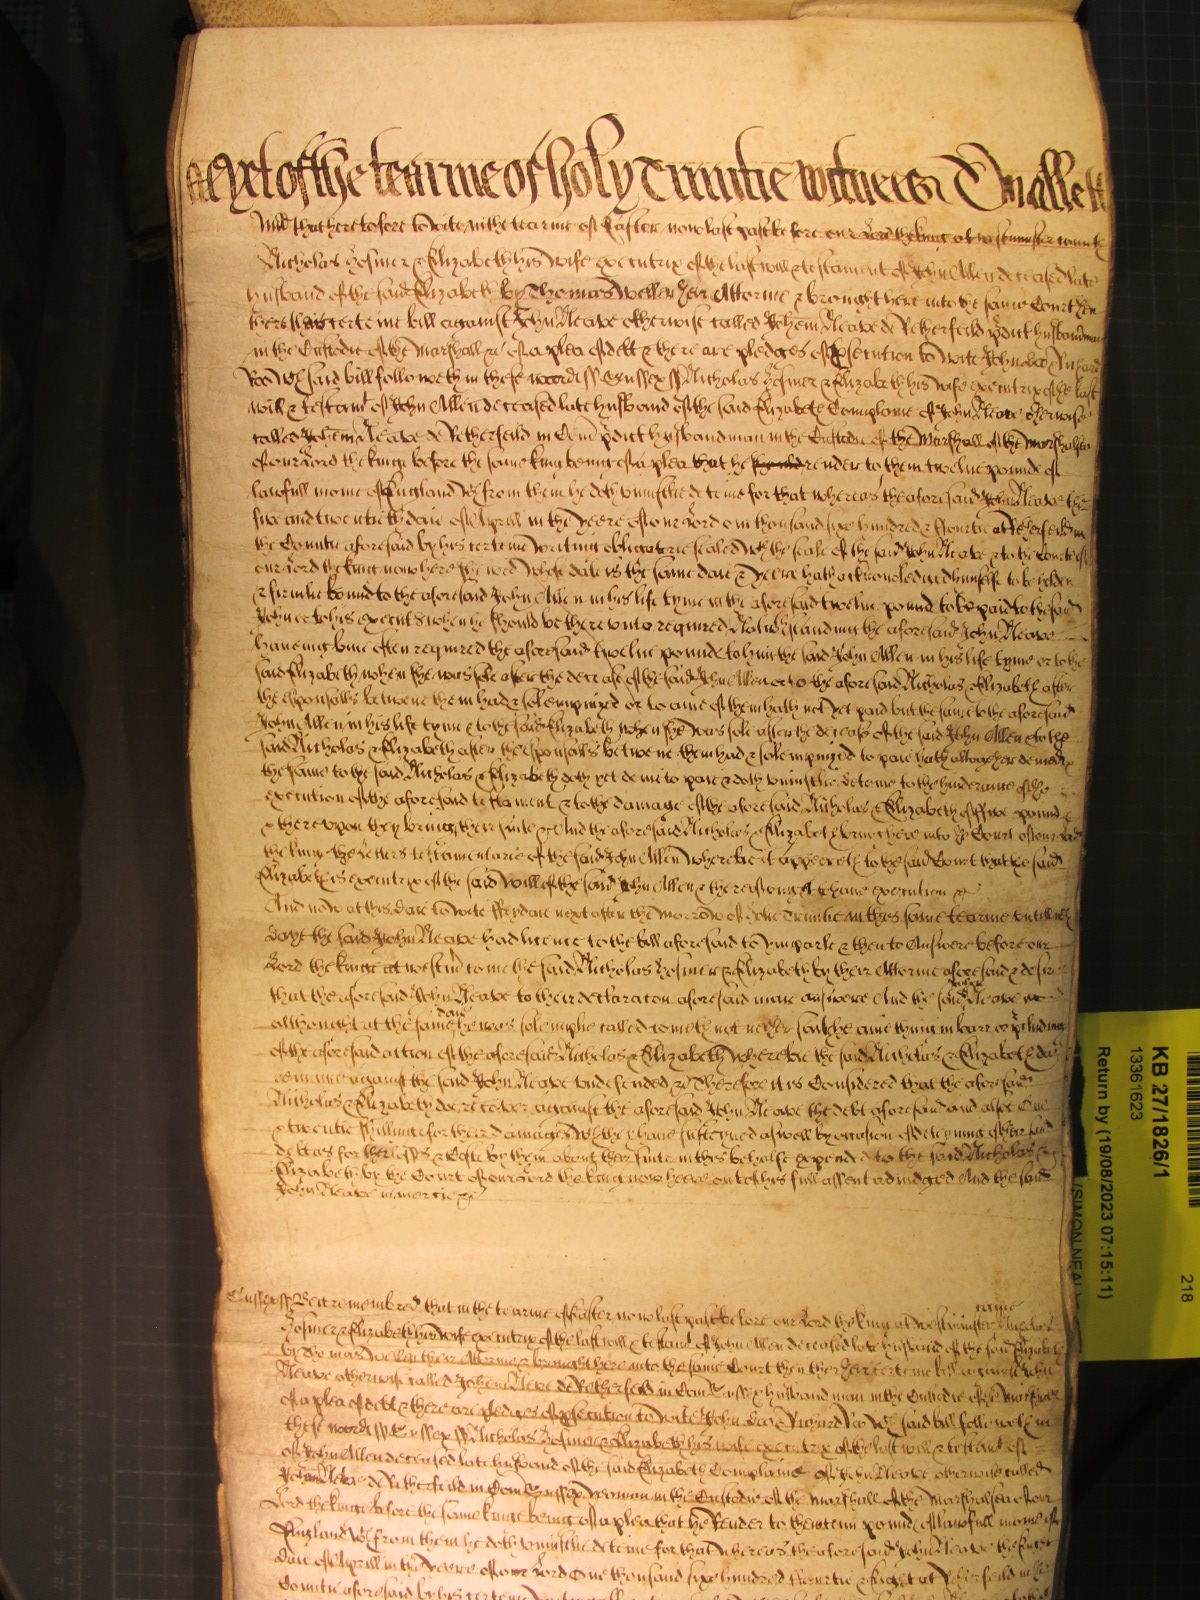 next of the tearme of holy Trinitie witnes
that heretofore to wite in the tearme of Easter now last past before our Lord the king at westminster came
Nicholas Hosmer & Elizabeth his wife executrix of the last will & testament of John Allen deceased late
husband of the said Elizabeth by Thomas Weller their Attorney & brought here into the same Court then
there certeine bill against John Neave otherwise called John Neave de Retherfeild husbandman
in the Custodie of the Marshall &c of a plea of debt & there are pledges of prosecution to wite John Doe & Richard
Roo wch said bill followeth in these wordes ss Sussex ss Nicholas Hosmer & Elizabeth his wife executrix of the last
will & testamt of John Allen deceased late husband of the said Elizabeth Complaine of John Neave otherwise
called John Neave de Retherfeild in Com husbandman in the Custodie of the Marshall of the Marshalsea
of our Lord the kinge before the same king being of a plea that he render to them twelve pounds of
lawfull monie of England wch from them he doth uniustlie deteine for that whereas the aforesaid John Neave the
five and twentieth daie of Aprill in the yeere of our Lord one thousand sixe hundred & fourtie at Retherfeild in
the Countie aforesaid by his certeine writing obligatorie sealed wth the seale of the said John Neave & to the Courte of
our Lord the king now here shewed whose date is the same daie & yeere hath acknowledged himselfe to be holden
& firmlie bound to the aforesaid John Allen in his life tyme in the aforesaid twelve pound to be paid to the said
John or to his execut when he should be thereunto required Notwthstanding the aforesaid John Neave
haveing bine often required the aforesaid twelve pounds to him the said John Allen in his life tyme or to the
said Elizabeth when she was sole after the decease of the said John Allen or to the aforesaid Nicholas & Elizabeth after
the espousalls betweene them had & solempnized or to anie of them hath not yet paid but the same to the aforesaid
John Allen in his life tyme & to the said Elizabeth when she was sole after the decease of the said John Allen & to the
said Nicholas & Elizabeth after the espousalls betweene them had & solempnized to paie hath altogether denied &
the same to the said Nicholas & Elizabeth doth yet denie to paie & doth uniustlie deteine to the hinderance of the
execution of the aforesaid testament & to the damage of the aforesaid Nicholas & Elizabeth of five pounds
& thereupon they bring their suite &c And the aforesaid Nicholas & Elizabeth bring here into the Court of our Lord
the kinge the letters testamentarie of the said John Allen whereby it appeereth to the said Court that the said
Elizabeth is executrix of the said will of the said John Allen & thereof ought to have execution &c
And now at this daie to wite ffrydaie next after the morrow of holie Trinitie in this same tearme untill wch
daye the said John Neave had licence to the bill aforesaid to imparle & then to Answere before our
Lord the kinge at westmr come the said Nicholas Hosmer & Elizabeth by their Attorney aforesaid & desire
that the aforesaid John Neave to their declaracon aforesaid maie answere And the said John Neave
although at the same daie he was solemplie called cometh not neither saith he anie thing in barr or preclud
of the aforesaid action of the aforesaid Nicholas & Elizabeth whereby the said Nicholas & Elizabeth doe
remaine against the said John Neave undefended &c Therefore it is Considered that the aforesaid
Nicholas & Elizabeth doe recover against the aforesaid John Neave the debt aforesaid and alsoe One
& twentie shillings for their damages wch they have susteyned aswell by occasion of deteyning of the said
debt as for theire costs by them about their suite in this behalfe expended to the said Nicholas &
Elizabeth by the Court of our Lord the king now heere out of his full assent adiudged And the said
John Neave in mercie &c
Sussex ss Be it remembred that in the tearme of Easter now last past before our Lord the king at westminster came
Hosmer & Elizabeth his wife executrix of the last will & testamt of John Allen deceased late husband of the said Elizabeth
by Thomas Weller their Attorney & brought here into the same Court then there certeine bill against John
Neave otherwise called John Neave de Retherfeild in Com Sussex husbandman in the Custodie of the Marshall
of a plea of debt & there are pledges of prosecution to wite John Doe & Richard Roo wch said bill followeth in
these wordes ss Sussex ss Nicholas Hosmer & Elizabeth his wife executrix of the last will & testamt of
of John Allen deceased late husband of the said Elizabeth Complaine of John Neave otherwise called
John Neave de Retherfeild in Com Sussex yeoman in the Custodie of the Marshall of the Marshalsea of our
Lord the kinge before the same kinge being of a plea that he Render to them pounds of lawfull monie of
England wch from them he doth uniustlie deteine for that whereas the aforesaid John Neave the
daie of Aprill in the yeere of our Lord One thousand sixe hundred thirtie & Eight at Retherfeild in the
Countie aforesaid by his certeine
KB 27/1826/1
13361623
Return by (19/08/2023 07:15:11)
218
(SIMON NEAL)